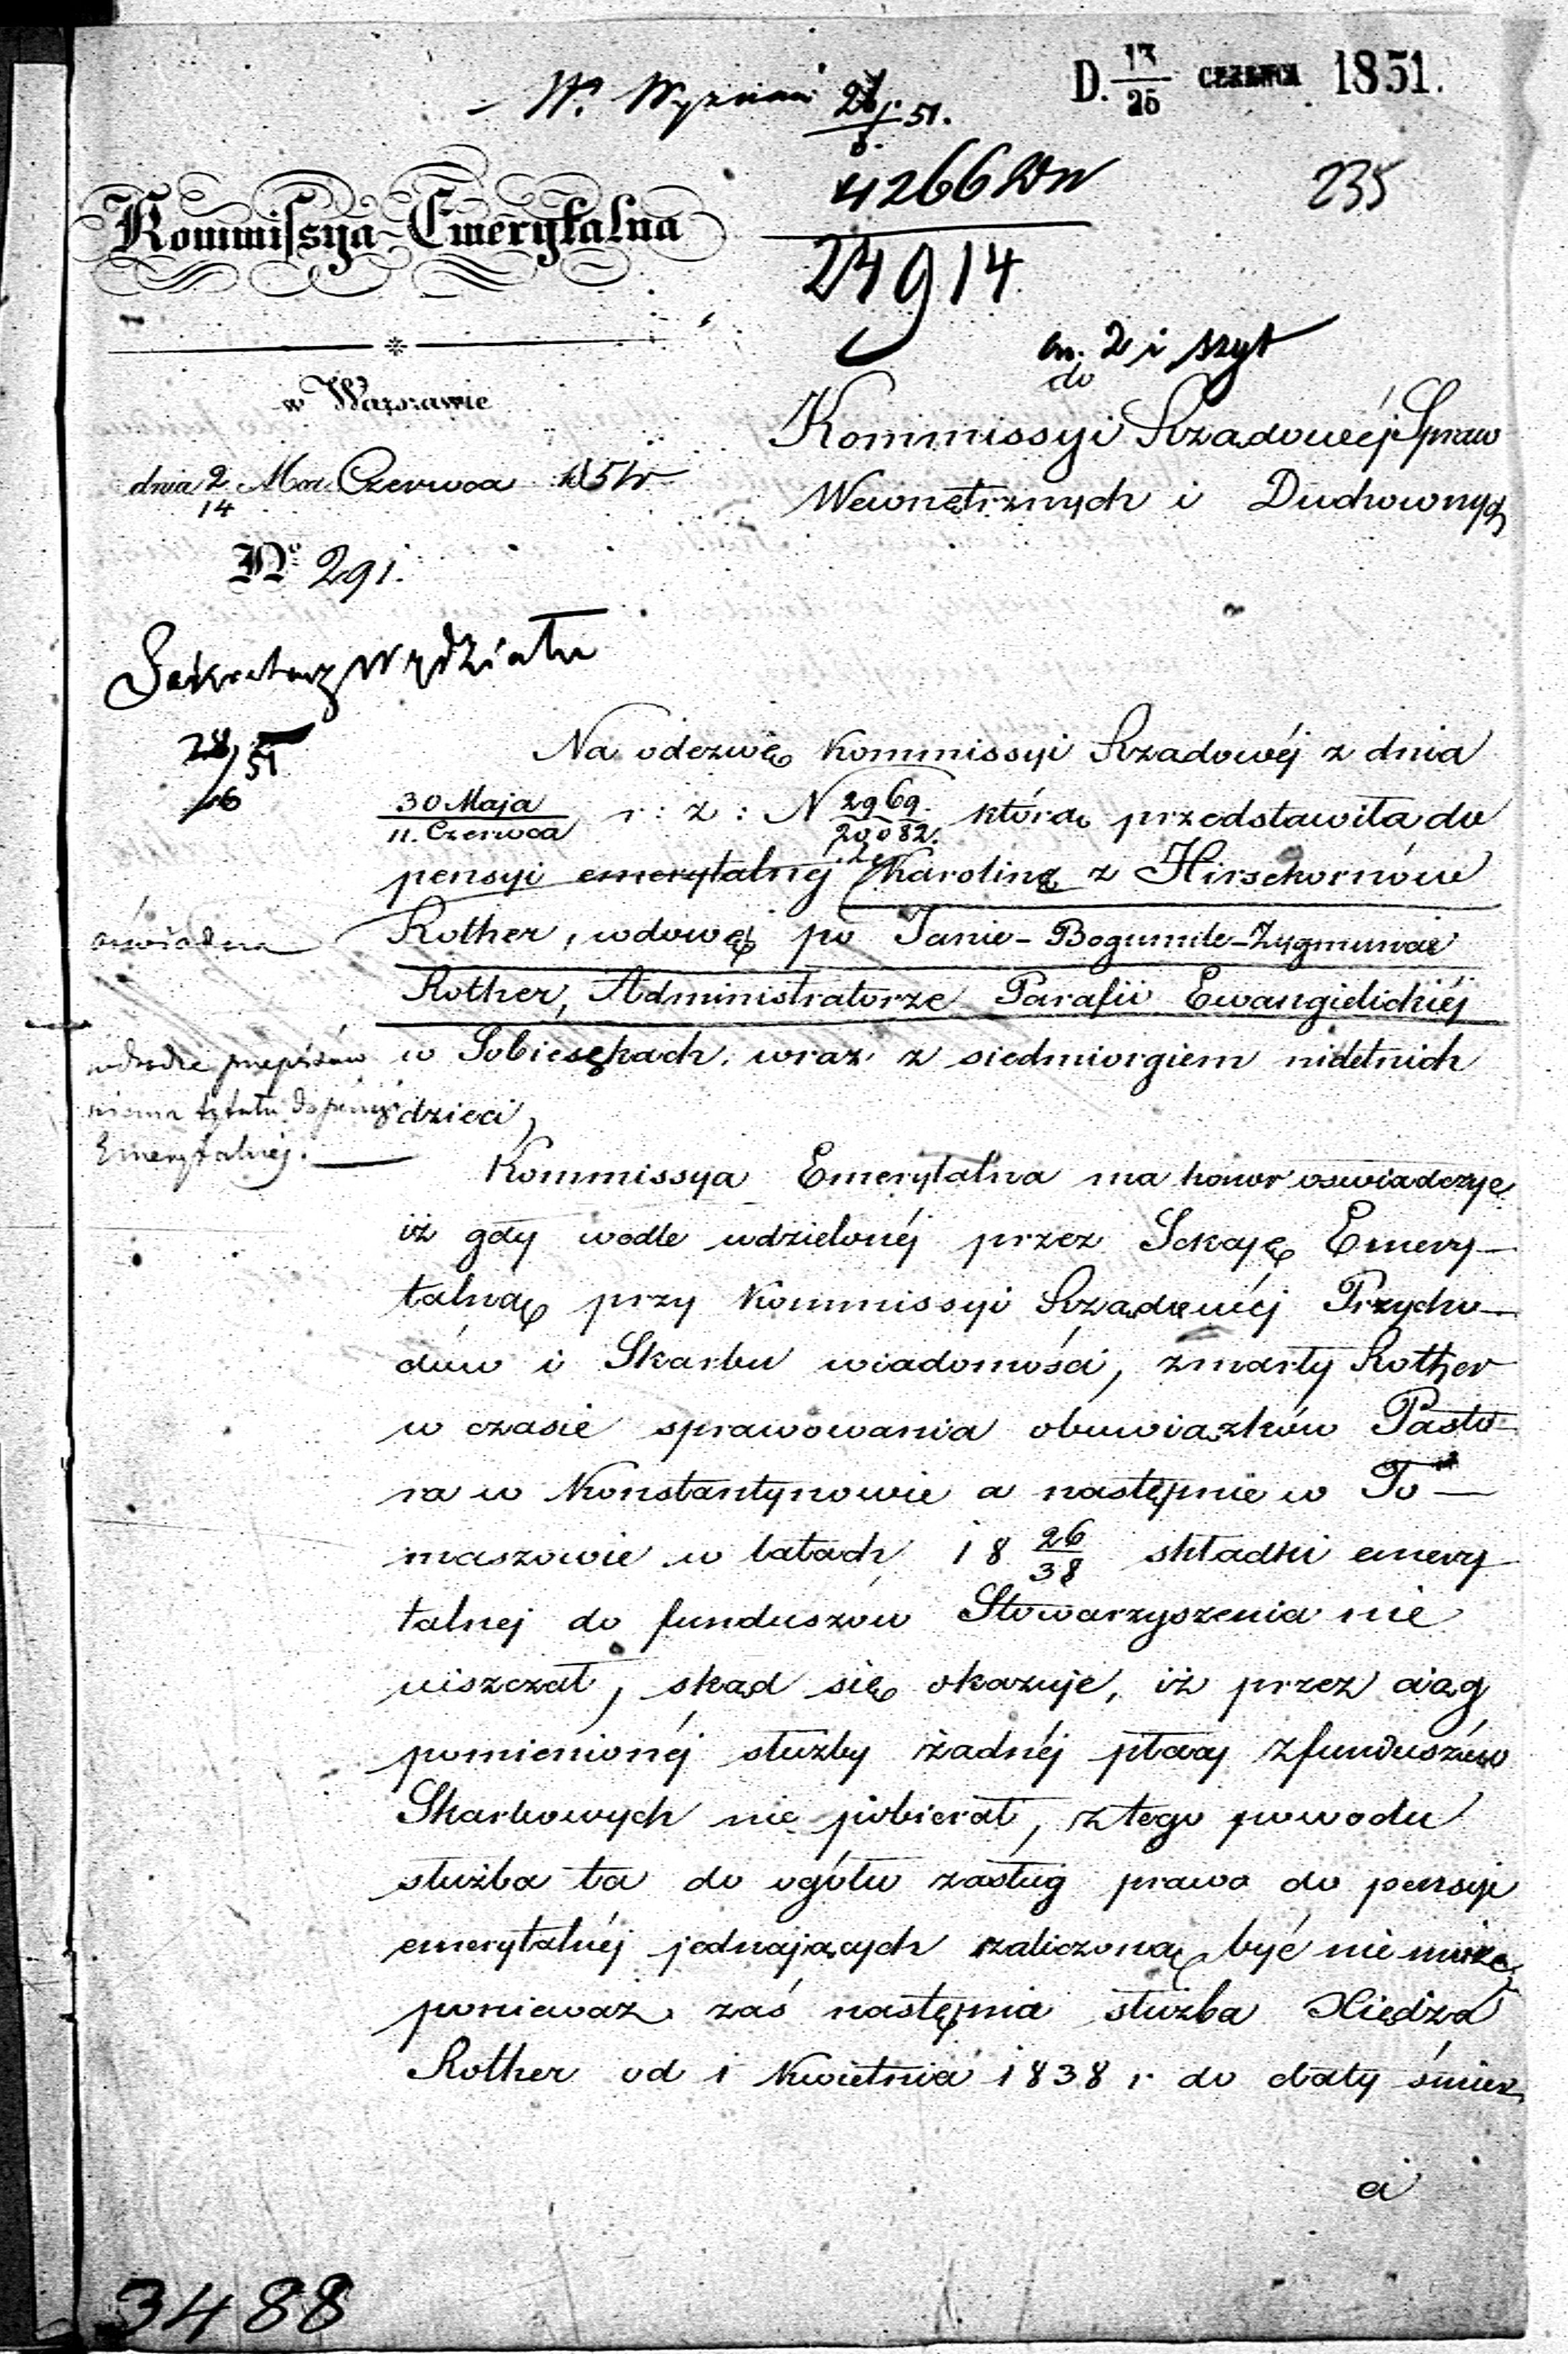 D. 13/25 CZERWCA 1851.
W. Wyznań 26/6. 51.
4266
24914
235
Kommissya Emerytalna
an. 2 i szyt
w Warszawie
dnia 2/14 Mca Czerwca 1851 r
No 291.
do
Kommissyi Rządowéj Spraw
Wewnętrznych i Duchownych
Sekretarz Wydziału
28/6 51
Na odezwę Kommissyi Rządowéj z dnia
30 Maja/11. Czerwca r: z: N 2969./20082. którą przedstawiła do
pensyi emerytalnéj Karolinę z Hirsekornów
Rother, wdowę po Janie-Bogumile-Zygmuncie
Rother, Administratorze Parafii Ewangielickiéj
w Sobiesękach, wraz z siedmiorgiem nieletnich
dzieci,
oświadcza
wedle przepisów
niema tytułu do pensyi
Emerytalnéj.
Kommissya Emerytalna ma honor oswiadczyć
iż gdy wedle udzielonéj przez Sekcyę Emery-
talną przy Kommissyi Rządowéj Przycho-
dów i Skarbu wiadomości, zmarły Rother
w czasie sprawowania obowiązków Pasto-
ra w Konstantynowie a następnie w To-
maszowie w latach 18 26/38 składki emery-
talnej do funduszów Stowarzyszenia nie
uiszczał, skąd się okazuje, iż przez ciąg
pomienionéj służby żadnéj płacy z funduszów
Skarbowych nie pobierał, z tego powodu
służba ta do ogółu zasług prawo do pensyi
emerytalnéj jednających zaliczoną być nie może,
ponieważ zaś następnia służba Xiędza
Rother od 1 Kwietnia 1838 r. do daty śmier
ci
3488